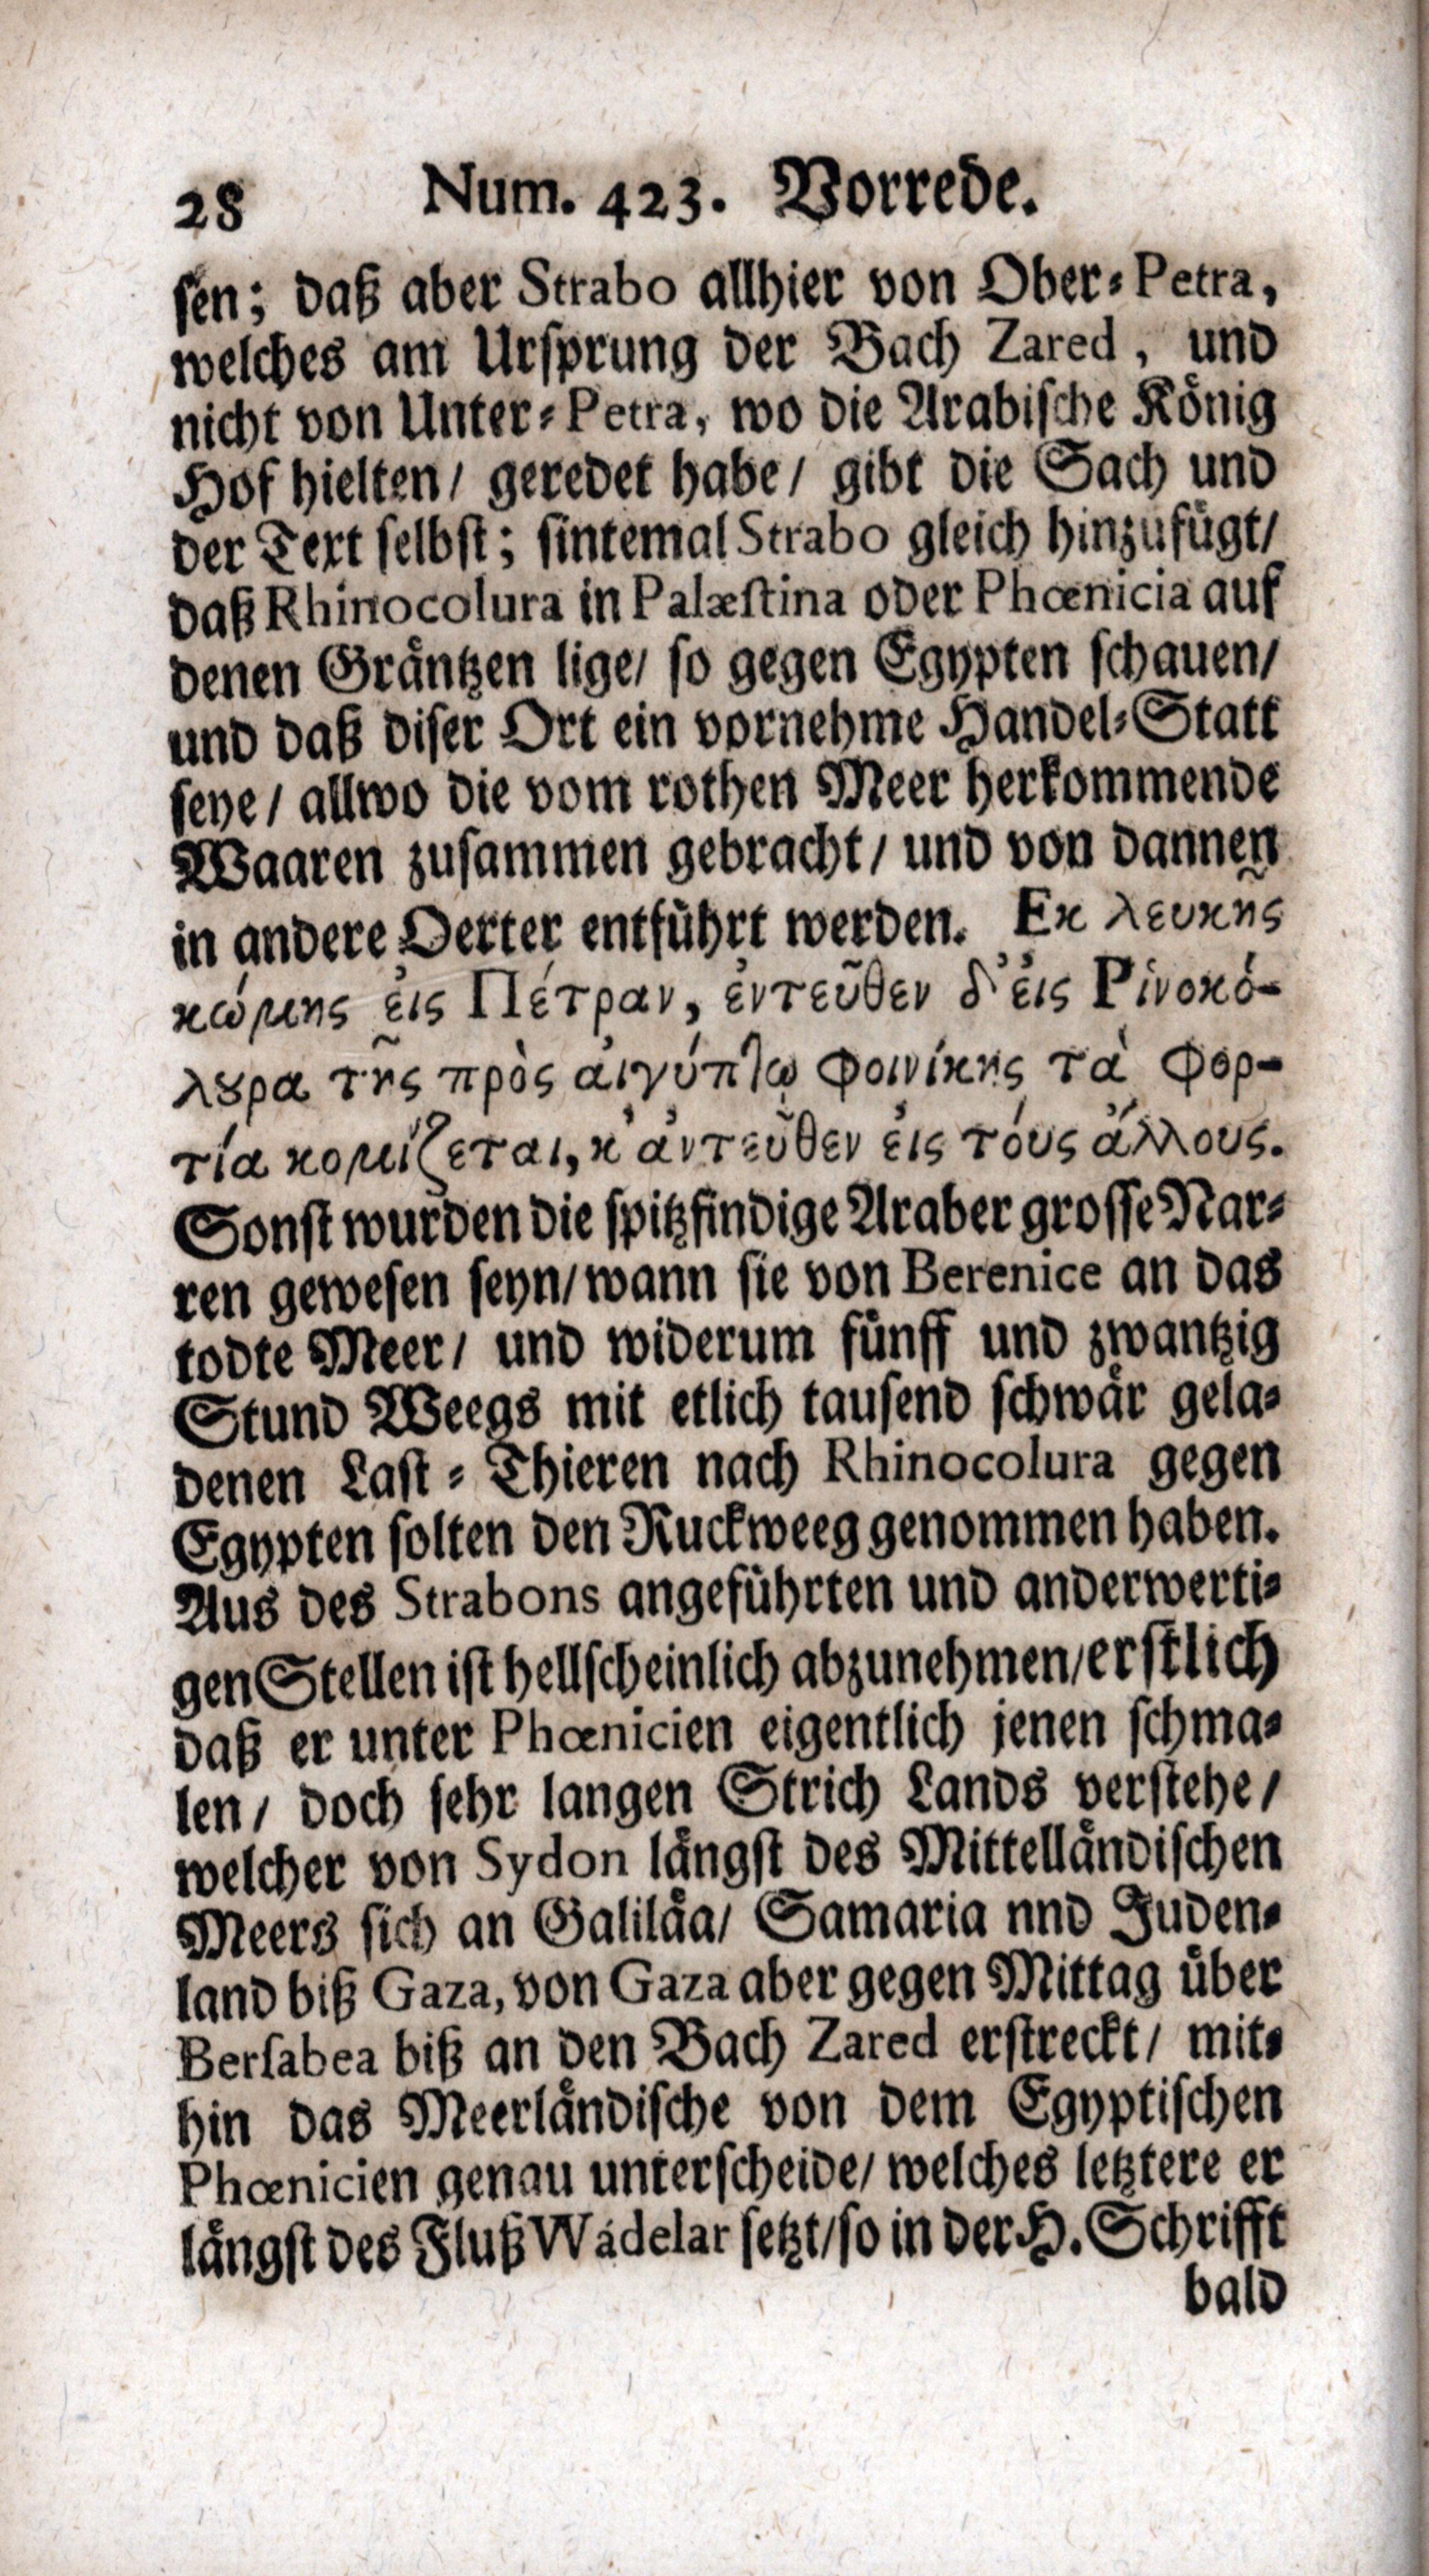 28 Num. 423. Vorrede.
sen; daß aber Strabo allhier von Ober-Petra,
welches am Ursprung der Bach Zared, und
nicht von Unter-Petra, wo die Arabische König
Hof hielten/ geredet habe/ gibt die Sach und
der Text selbst; sintemal Strabo gleich hinzufügt/
daß Rhinocolura in Palæstina oder Phœnicia auf
denen Gräntzen lige/ so gegen Egypten schauen/
und daß diser Ort ein vornehme Handel-Statt
seye/ allwo die vom rothen Meer herkommende
Waaren zusammen gebracht/ und von dannen
in andere Oerter entführt werden. Εκ λευκῆς
κώμης ἐις Πέτραν, ἐντεῦθεν δ᾽ἐις Ρίνοκό-
λȣρα τῆς πρὸς ἀιγύπτῳ Φοινίκης τὰ Φορ-
τία κομίζεται, κ᾽ἀντεῦθεν ἐις τόυς ἄλλους.
Sonst wurden die spitzfindige Araber grosse Nar-
ren gewesen seyn/ wann sie von Berenice an das
todte Meer/ und widerum fünff und zwantzig
Stund Weegs mit etlich tausend schwär gela-
denen Last-Thieren nach Rhinocolura gegen
Egypten solten den Ruckweeg genommen haben.
Aus des Strabons angeführten und anderwerti-
gen Stellen ist hellscheinlich abzunehmen/ erstlich
daß er unter Phœnicien eigentlich jenen schma-
len/ doch sehr langen Strich Lands verstehe/
welcher von Sydon längst des Mittelländischen
Meers sich an Galiläa/ Samaria nnd Juden-
land biß Gaza, von Gaza aber gegen Mittag über
Bersabea biß an den Bach Zared erstreckt/ mit-
hin das Meerländische von dem Egyptischen
Phœnicien genau unterscheide/ welches letztere er
längst des Fluß Wádelar setzt/ so in der H. Schrifft
bald